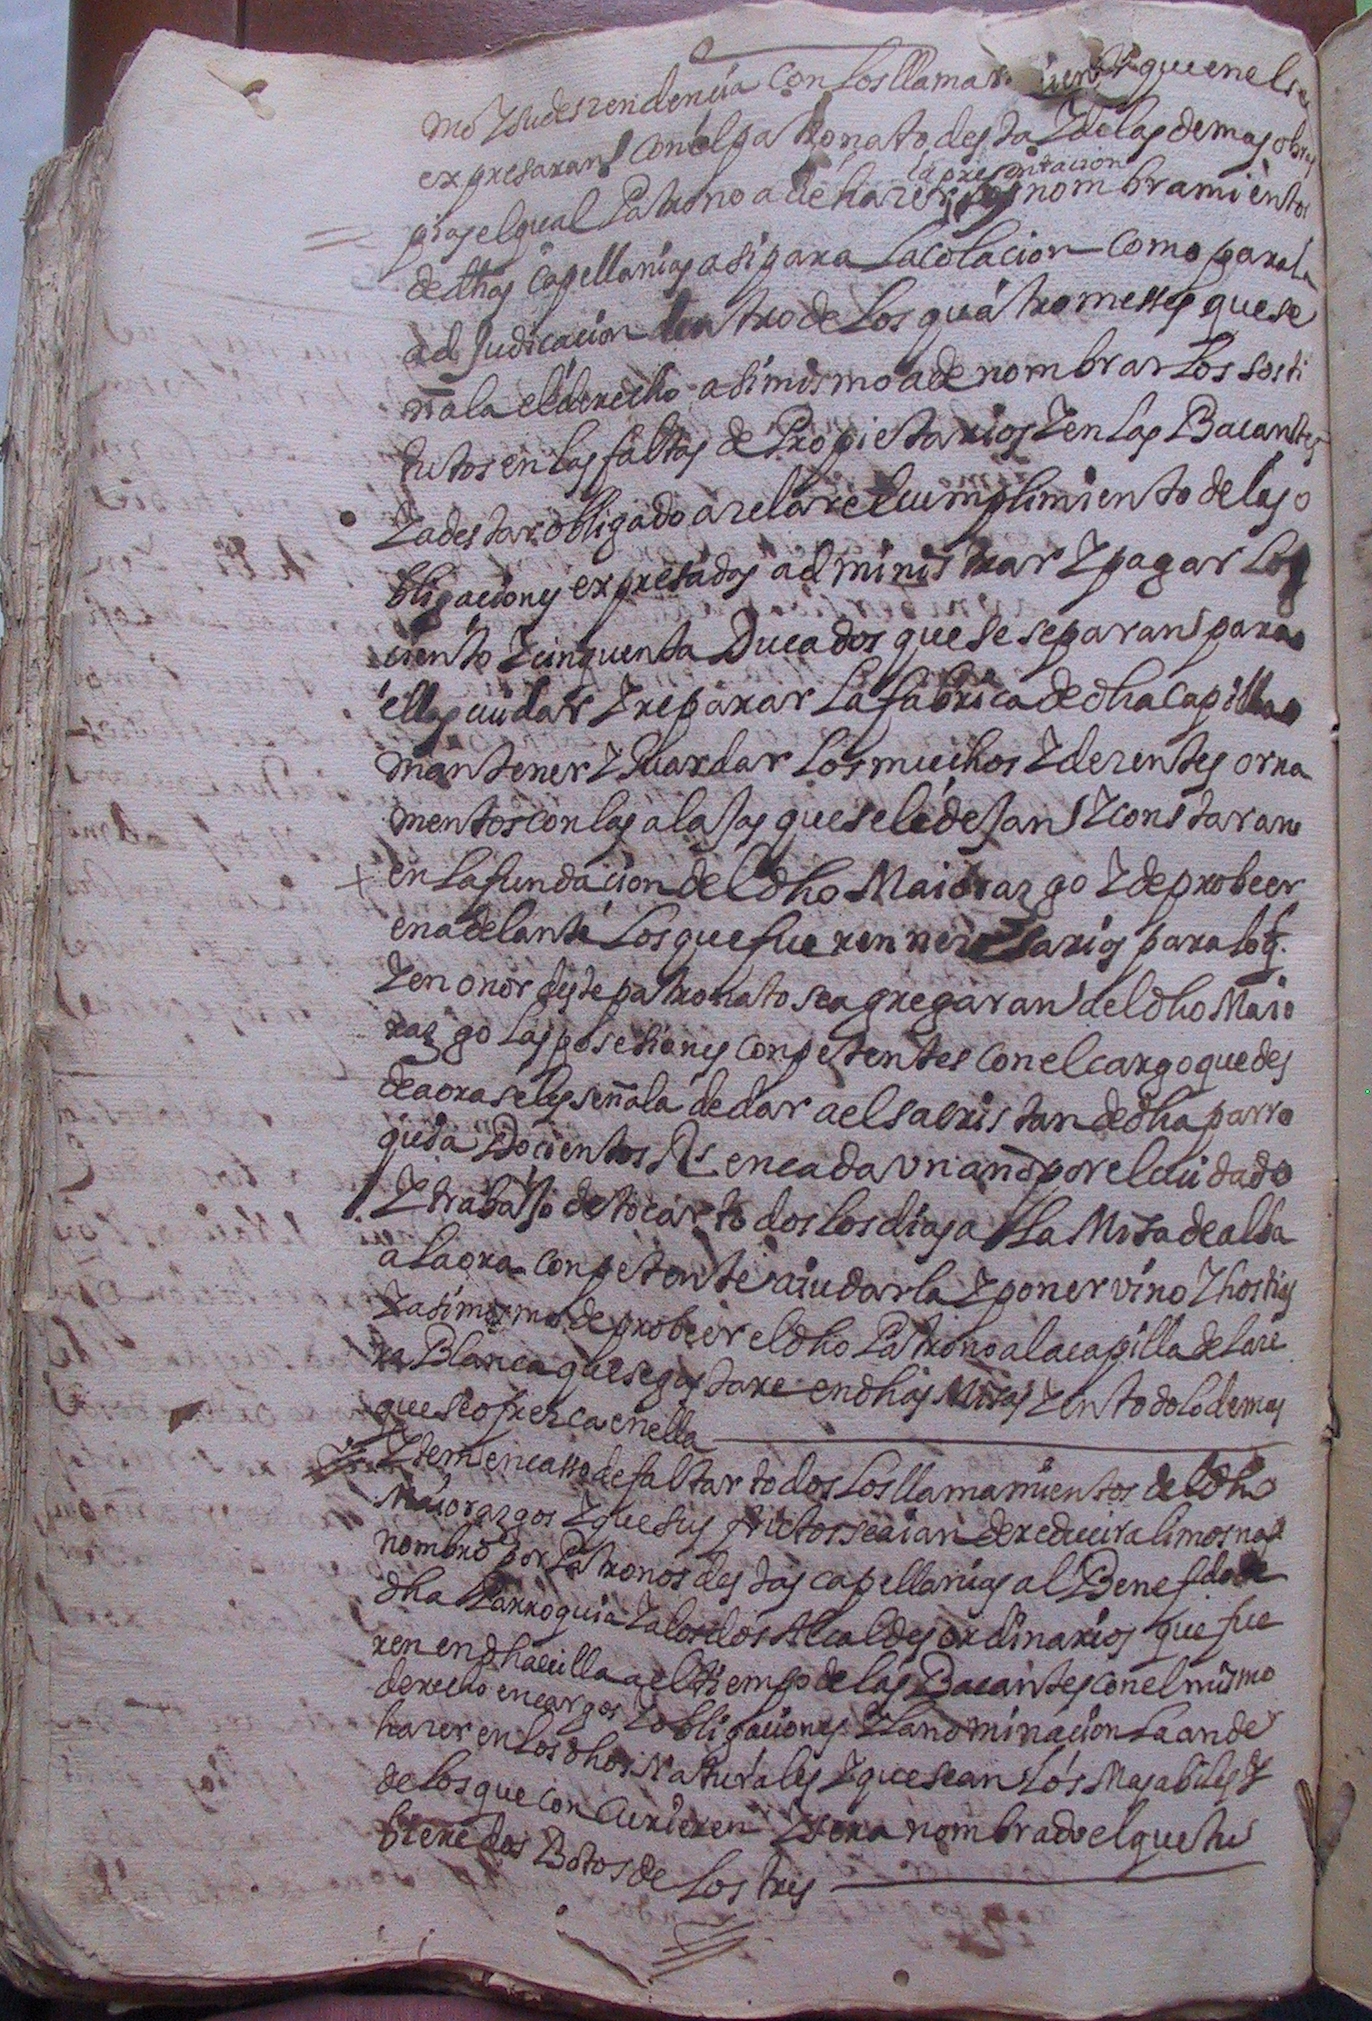 mo Y su deszendencia con los llamam ient Y que en el se
expresaran con el patronato desta Y de las demas obras
la presentacion
pias el qual Patrono a de hazer nombramientos
de dhas capellanias asi para la colacion como para la
adjudicacion dentro de los quatro messes que se
ñala el derecho asimismo a de nombrar los sosti
tutos en las faltas de Propietarios Y en las Bacantes
Y a de star obligado a zelar el cumplimiento de las o
bligaciones expresadas administrar Y pagar los
ciento Y cinquenta Ducados que se separan para
ellas cuidar Y reparar la fabrica de dha capilla
mantener Y Guardar los muchos Y dezentes orna
mentos con las alajas que se le dejan Y constaran
en la fundacion del dho Maiorazgo Y de probeer
en adelante los que fueren nezesarios para
Y en onor deste patronato se agregaran del dho Maio
razgo las posesiones conpetentes con el cargo que des
de aora se les señala de dar a el sacristan de dha parro
quia Docientos Rs en cada un año por el cuidado
Y trabajo de tocar todos los dias a la Misa de alba
a la ora conpetente aiudarla Y poner vino Y hostias
Y asimismo de probeer el dho Patrono a la capilla de la ce
ra Blanca que se gastare en dhas Misas Y en todo lo demas
que se ofrezca en ella
Ytem en casso de faltar todos los llamamientos del dho
Maiorazgos Y que sus frutos se aian de reducir a limosnas
nombro por Patronos destas capellanias al Benefdo de
dha Parroquia Y a los dos Alcaldes ordinarios que fue
ren en dha villa a el tiempo de las Bacantes con el mismo
derecho encargos Y obligaciones Y la nominacion la an de
hazer en los dhos Naturales Y que sean los Mas abiles Y
de los que concurrieren Y sera nombrado el que tu
biere dos Botos de los tres